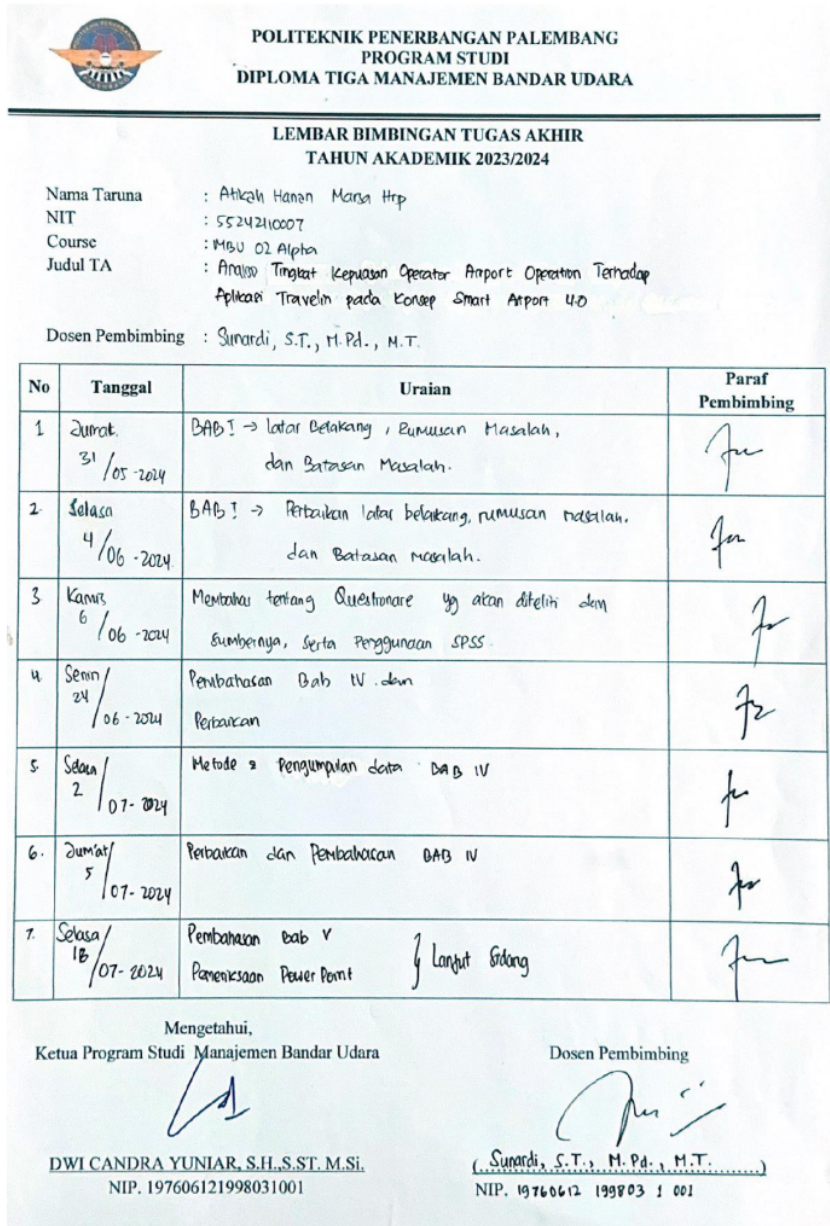 POLITEKNIK PENERBANGAN PALEMBANG
PROGRAM STUDI
DIPLOMA TIGA MANAJEMEN BANDAR UDARA
LEMBAR BIMBINGAN TUGAS AKHIR
TAHUN AKADEMIK 2023/2024
Nama Taruna : Atikah Hanan Marsa Hrp
NIT : 55242110007
Course : MBU 02 Alpha
Judul TA : Analisis Tingkat Kepuasan Operator Airport Operation Terhadap
Aplikasi Travelin pada Konsep Smart Airport 4.0
Dosen Pembimbing : Sunardi, S.T., M.Pd., M.T.
No Tanggal Uraian Paraf
Pembimbing
1 Jumat BAB I → latar Belakang, Rumusan Masalah,
31/05-2024 dan Batasan Masalah.
2. Selasa BAB I → Perbaikan latar belakang, rumusan masalah,
4/06-2024 dan Batasan masalah.
3. Kamis Membahas tentang Questionare yg akan diteliti dan
6/06-2024 Sumbernya, serta Penggunaan SPSS.
4. Senin/ Pembahasan Bab IV dan
24/06-2024 Perbaikan
5. Selasa/ Metode 2 Pengumpulan data BAB IV
2/07-2024
6. Jum'at/ Perbaikan dan Pembahasan BAB IV
5/07-2024
7. Selasa/ Pembahasan Bab V
/07-2024 Pemeriksaan Power Point } Lanjut Sidang
Mengetahui,
Ketua Program Studi Manajemen Bandar Udara Dosen Pembimbing
DWI CANDRA YUNIAR, S.H.,S.ST. M.Si. (Sunardi, S.T., M.Pd., M.T.)
NIP. 197606121998031001 NIP. 19760612 199803 1 001